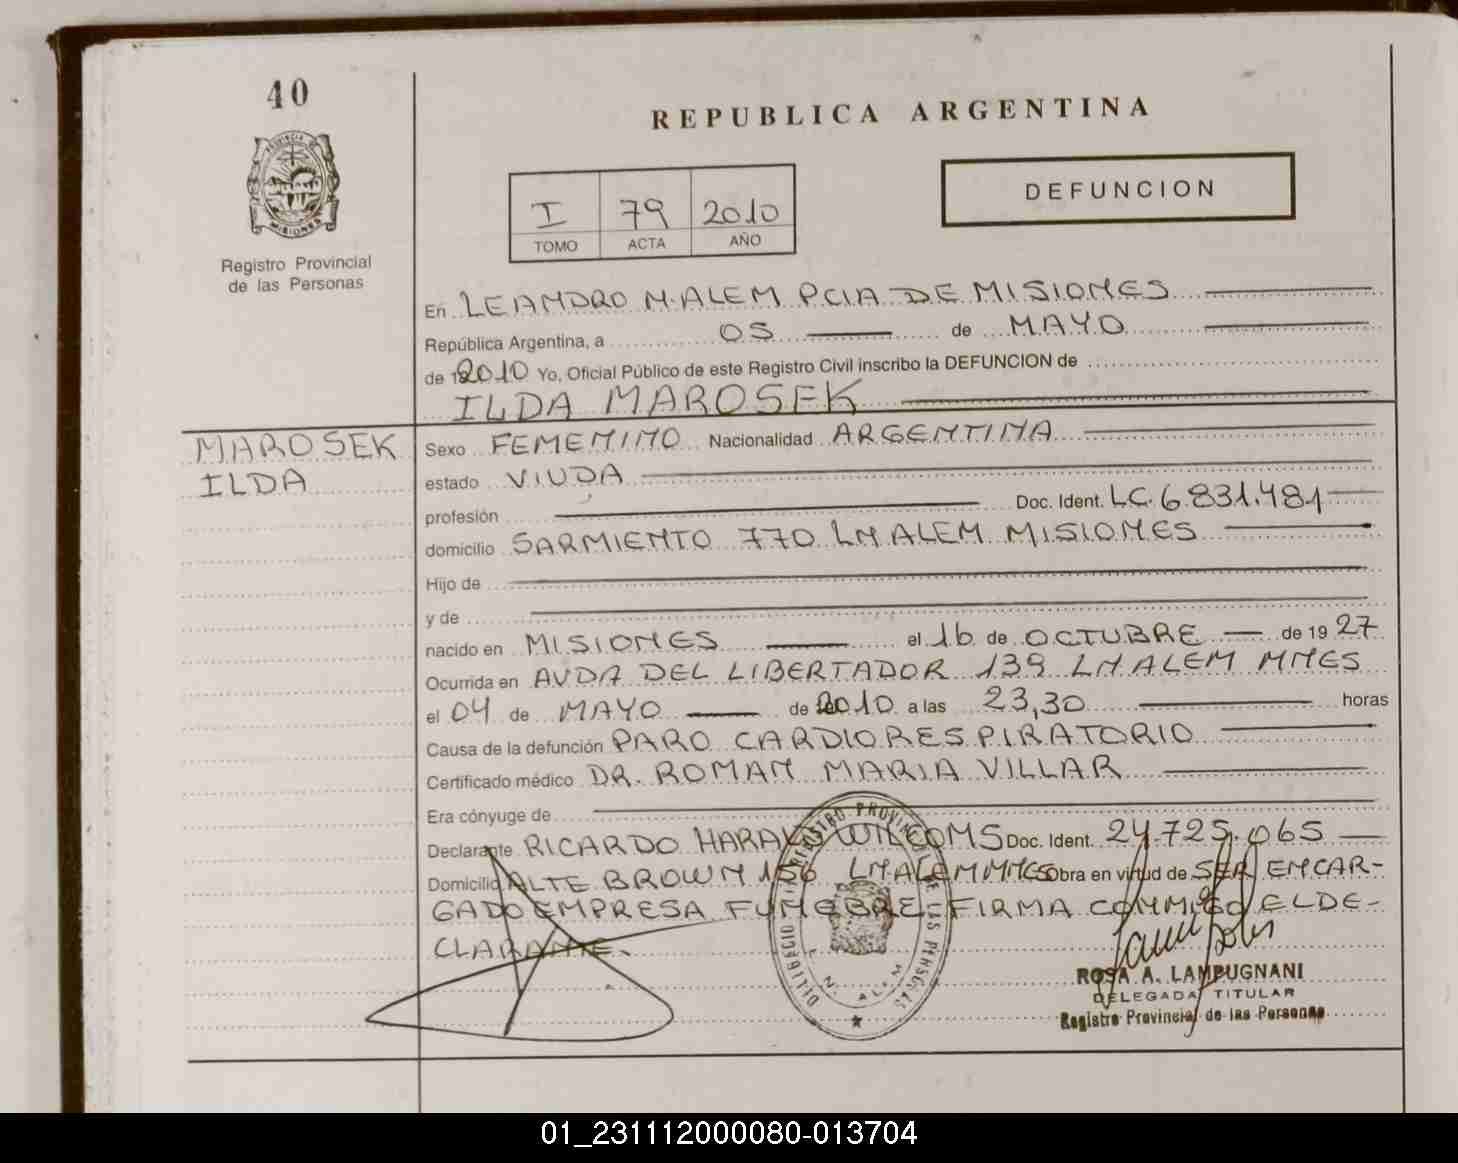 40
REPUBLICA ARGENTINA
PROVINCIA DE
MISIONES
Registro Provincial
de las Personas
DEFUNCION
I 79 2010
TOMO ACTA AÑO
En LEANDRO N. ALEM PCIA DE MISIONES
República Argentina, a 05 de MAYO
de 2010 Yo, Oficial Público de este Registro Civil inscribo la DEFUNCION de
ILDA MAROSEK
MAROSEK
ILDA
Sexo FEMENINO Nacionalidad ARGENTINA
estado VIUDA
profesión Doc. Ident. LC. 6.831.481
domicilio SARMIENTO 770 LN ALEM MISIONES
Hijo de
y de
nacido en MISIONES el 16 de OCTUBRE de 1927
Ocurrida en AVDA DEL LIBERTADOR 139 LN ALEM MNES
el 04 de MAYO de 2010 a las 23,30 horas
Causa de la defunción PARO CARDIORESPIRATORIO
Certificado médico DR. ROMAN MARIA VILLAR
Era cónyuge de
Declarante RICARDO Doc. Ident. 24.725.065
Domicilio ALTE BROWN 156 LN ALEM MNES Obra en virtud de SER ENCAR-
GADO EMPRESA FUNEBRE FIRMA CONMIGO EL DE-
CLARANTE.
REGISTRO PROVINCIAL DE LAS PERSONAS
L. N. ALEM
ROSA A. LAMPUGNANI
DELEGADA TITULAR
Registro Provincial de las Personas
01_231112000080-013704